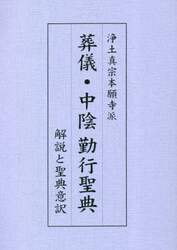 浄土真宗本願寺派
葬儀・中陰勤行聖典
解説と聖典意訳